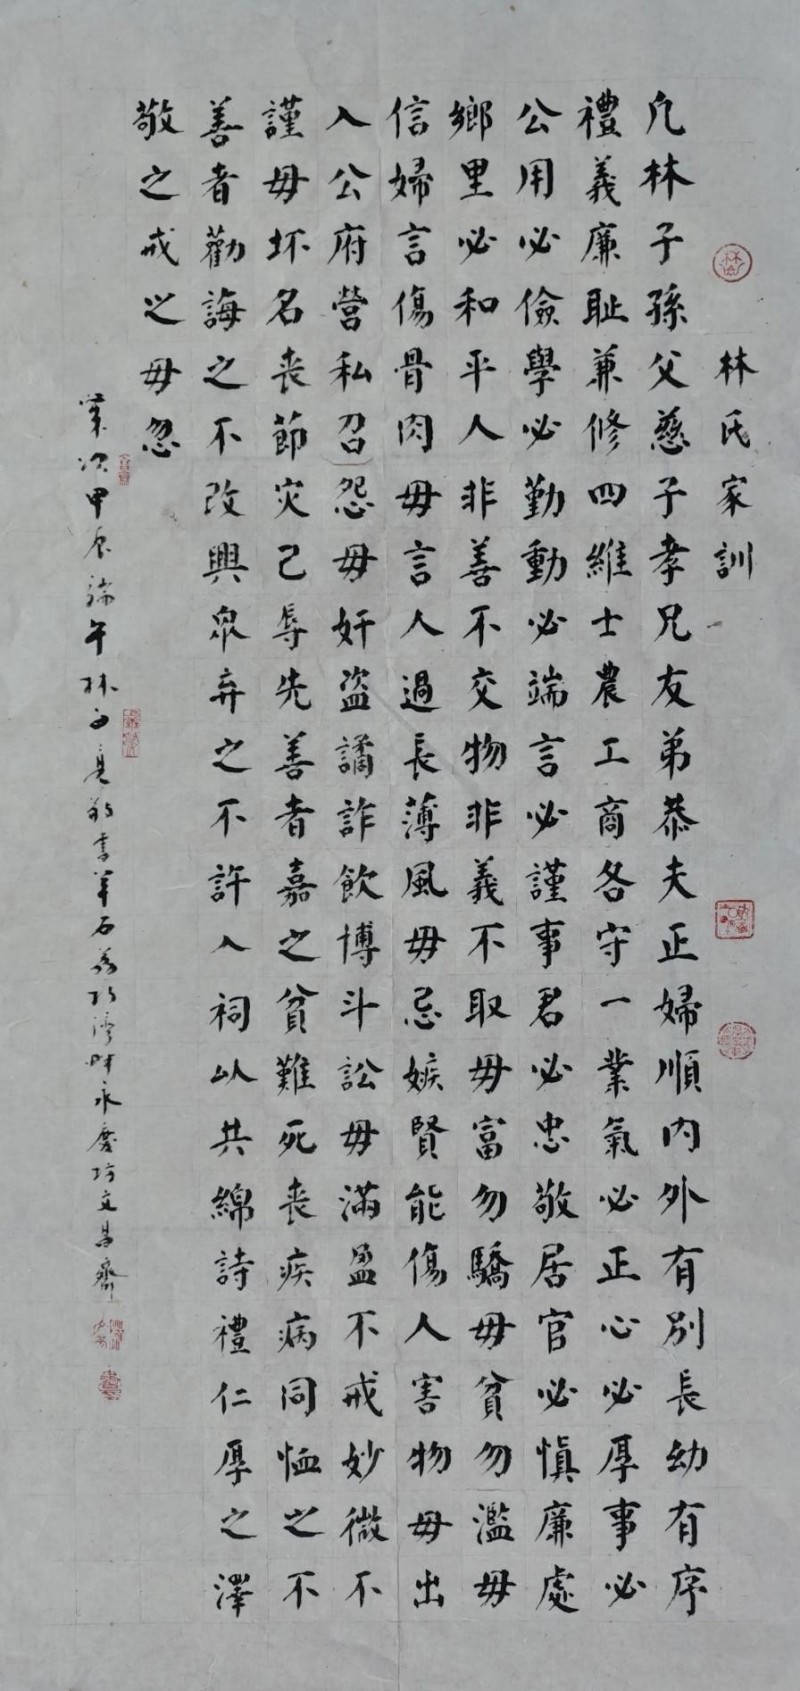 林氏家訓
凡林子孫父慈子孝兄友弟恭夫正婦順內外有別長幼有序
禮義廉耻兼修四維士農工商各守一業氣必正心必厚事必
公用必儉學必勤動必端言必謹事君必忠敬居官必慎廉處
鄉里必和平人非善不交物非義不取毋富勿驕毋貧勿濫毋
信婦言傷骨肉毋言人過長薄風毋忌嫉賢能傷人害物毋出
入公府營私召怨毋奸盜譎詐飲博斗訟毋滿盈不戒妙微不
謹毋坏名喪節灾己辱先善者嘉之貧難死喪疾病同恤之不
善者勸誨之不改興眾弃之不許入祠以共綿詩禮仁厚之澤
敬之戒之毋忽
歲次甲辰端午林 敬書 石 永慶坊文昌齋